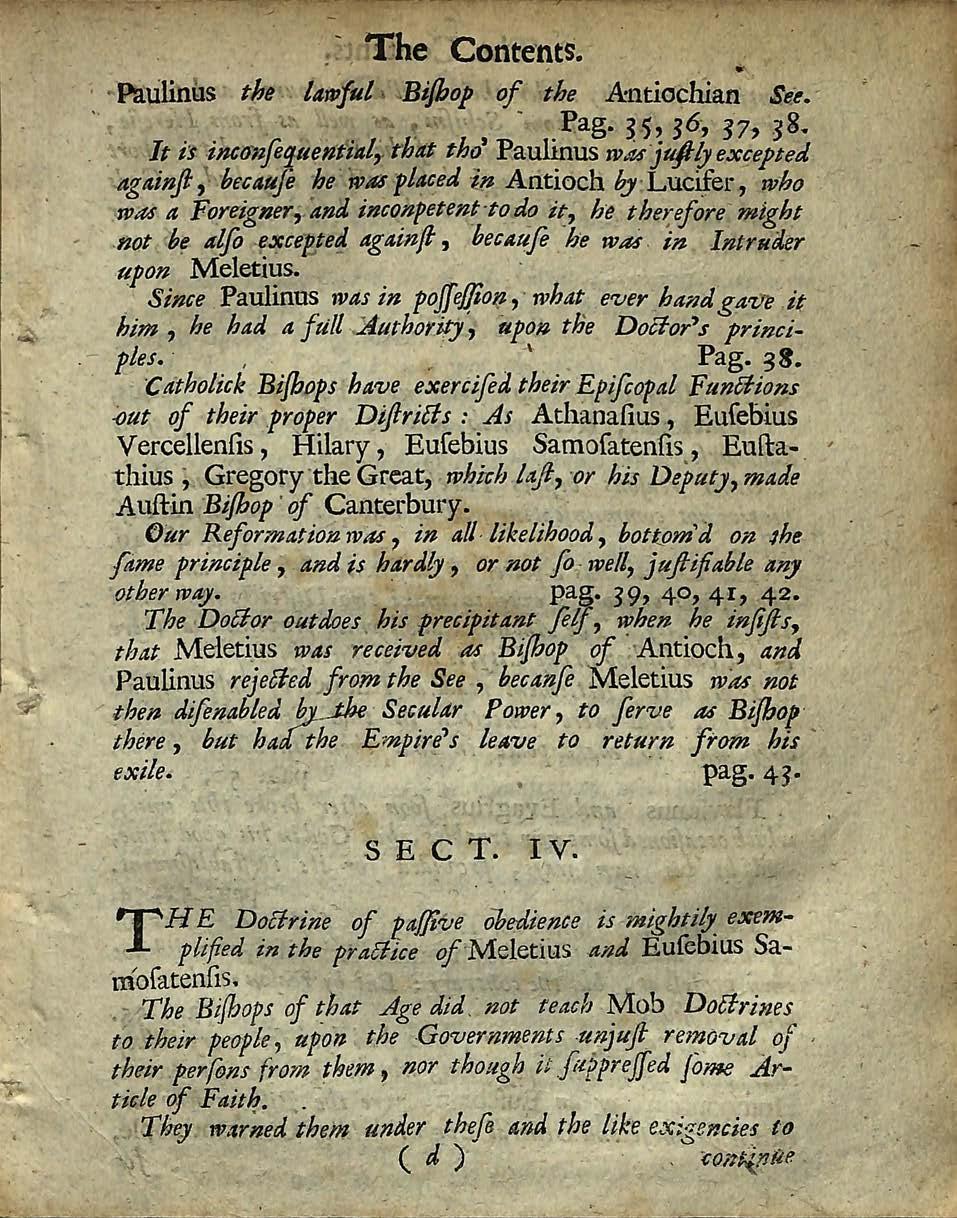 The Contents.
Paulinus the lawful Biſhop of the Antiochian See.
Pag. 35, 36, 37, 38.
It is inconſequential, that tho' Paulinus was juſtly excepted
againſt, becauſe he was placed in Antioch by Lucifer, who
was a Foreigner, and inconpetent to do it, he therefore might
not be alſo excepted againſt, becauſe he was in Intruder
upon Meletius.
Since Paulinus was in poſſeſſion, what ever hand gave it
him, he had a full Authority, upon the Doctor's princi-
ples. Pag. 38.
Catholick Biſhops have exerciſed their Epiſcopal Functions
out of their proper Diſtricts: As Athanaſius, Euſebius
Vercellenſis, Hilary, Euſebius Samoſatenſis, Euſta-
thius, Gregory the Great, which laſt, or his Deputy, made
Auſtin Biſhop of Canterbury.
Our Reformation was, in all likelihood, bottom'd on the
ſame principle, and is hardly, or not ſo well, juſtifiable any
other way. pag. 39, 40, 41, 42.
The Doctor outdoes his precipitant ſelf, when he inſiſts,
that Meletius was received as Biſhop of Antioch, and
Paulinus rejected from the See, becanſe Meletius was not
then diſenabled by the Secular Power, to ſerve as Biſhop
there, but had the Empire's leave to return from his
exile. pag. 43.
SECT. IV.
THE Doctrine of paſſive obedience is mightily exem-
plified in the practice of Meletius and Euſebius Sa-
moſatenſis.
The Biſhops of that Age did not teach Mob Doctrines
to their people, upon the Governments unjuſt removal of
their perſons from them, nor though it ſuppreſſed ſome Ar-
ticle of Faith.
They warned them under theſe and the like exigencies to
( d ) continue